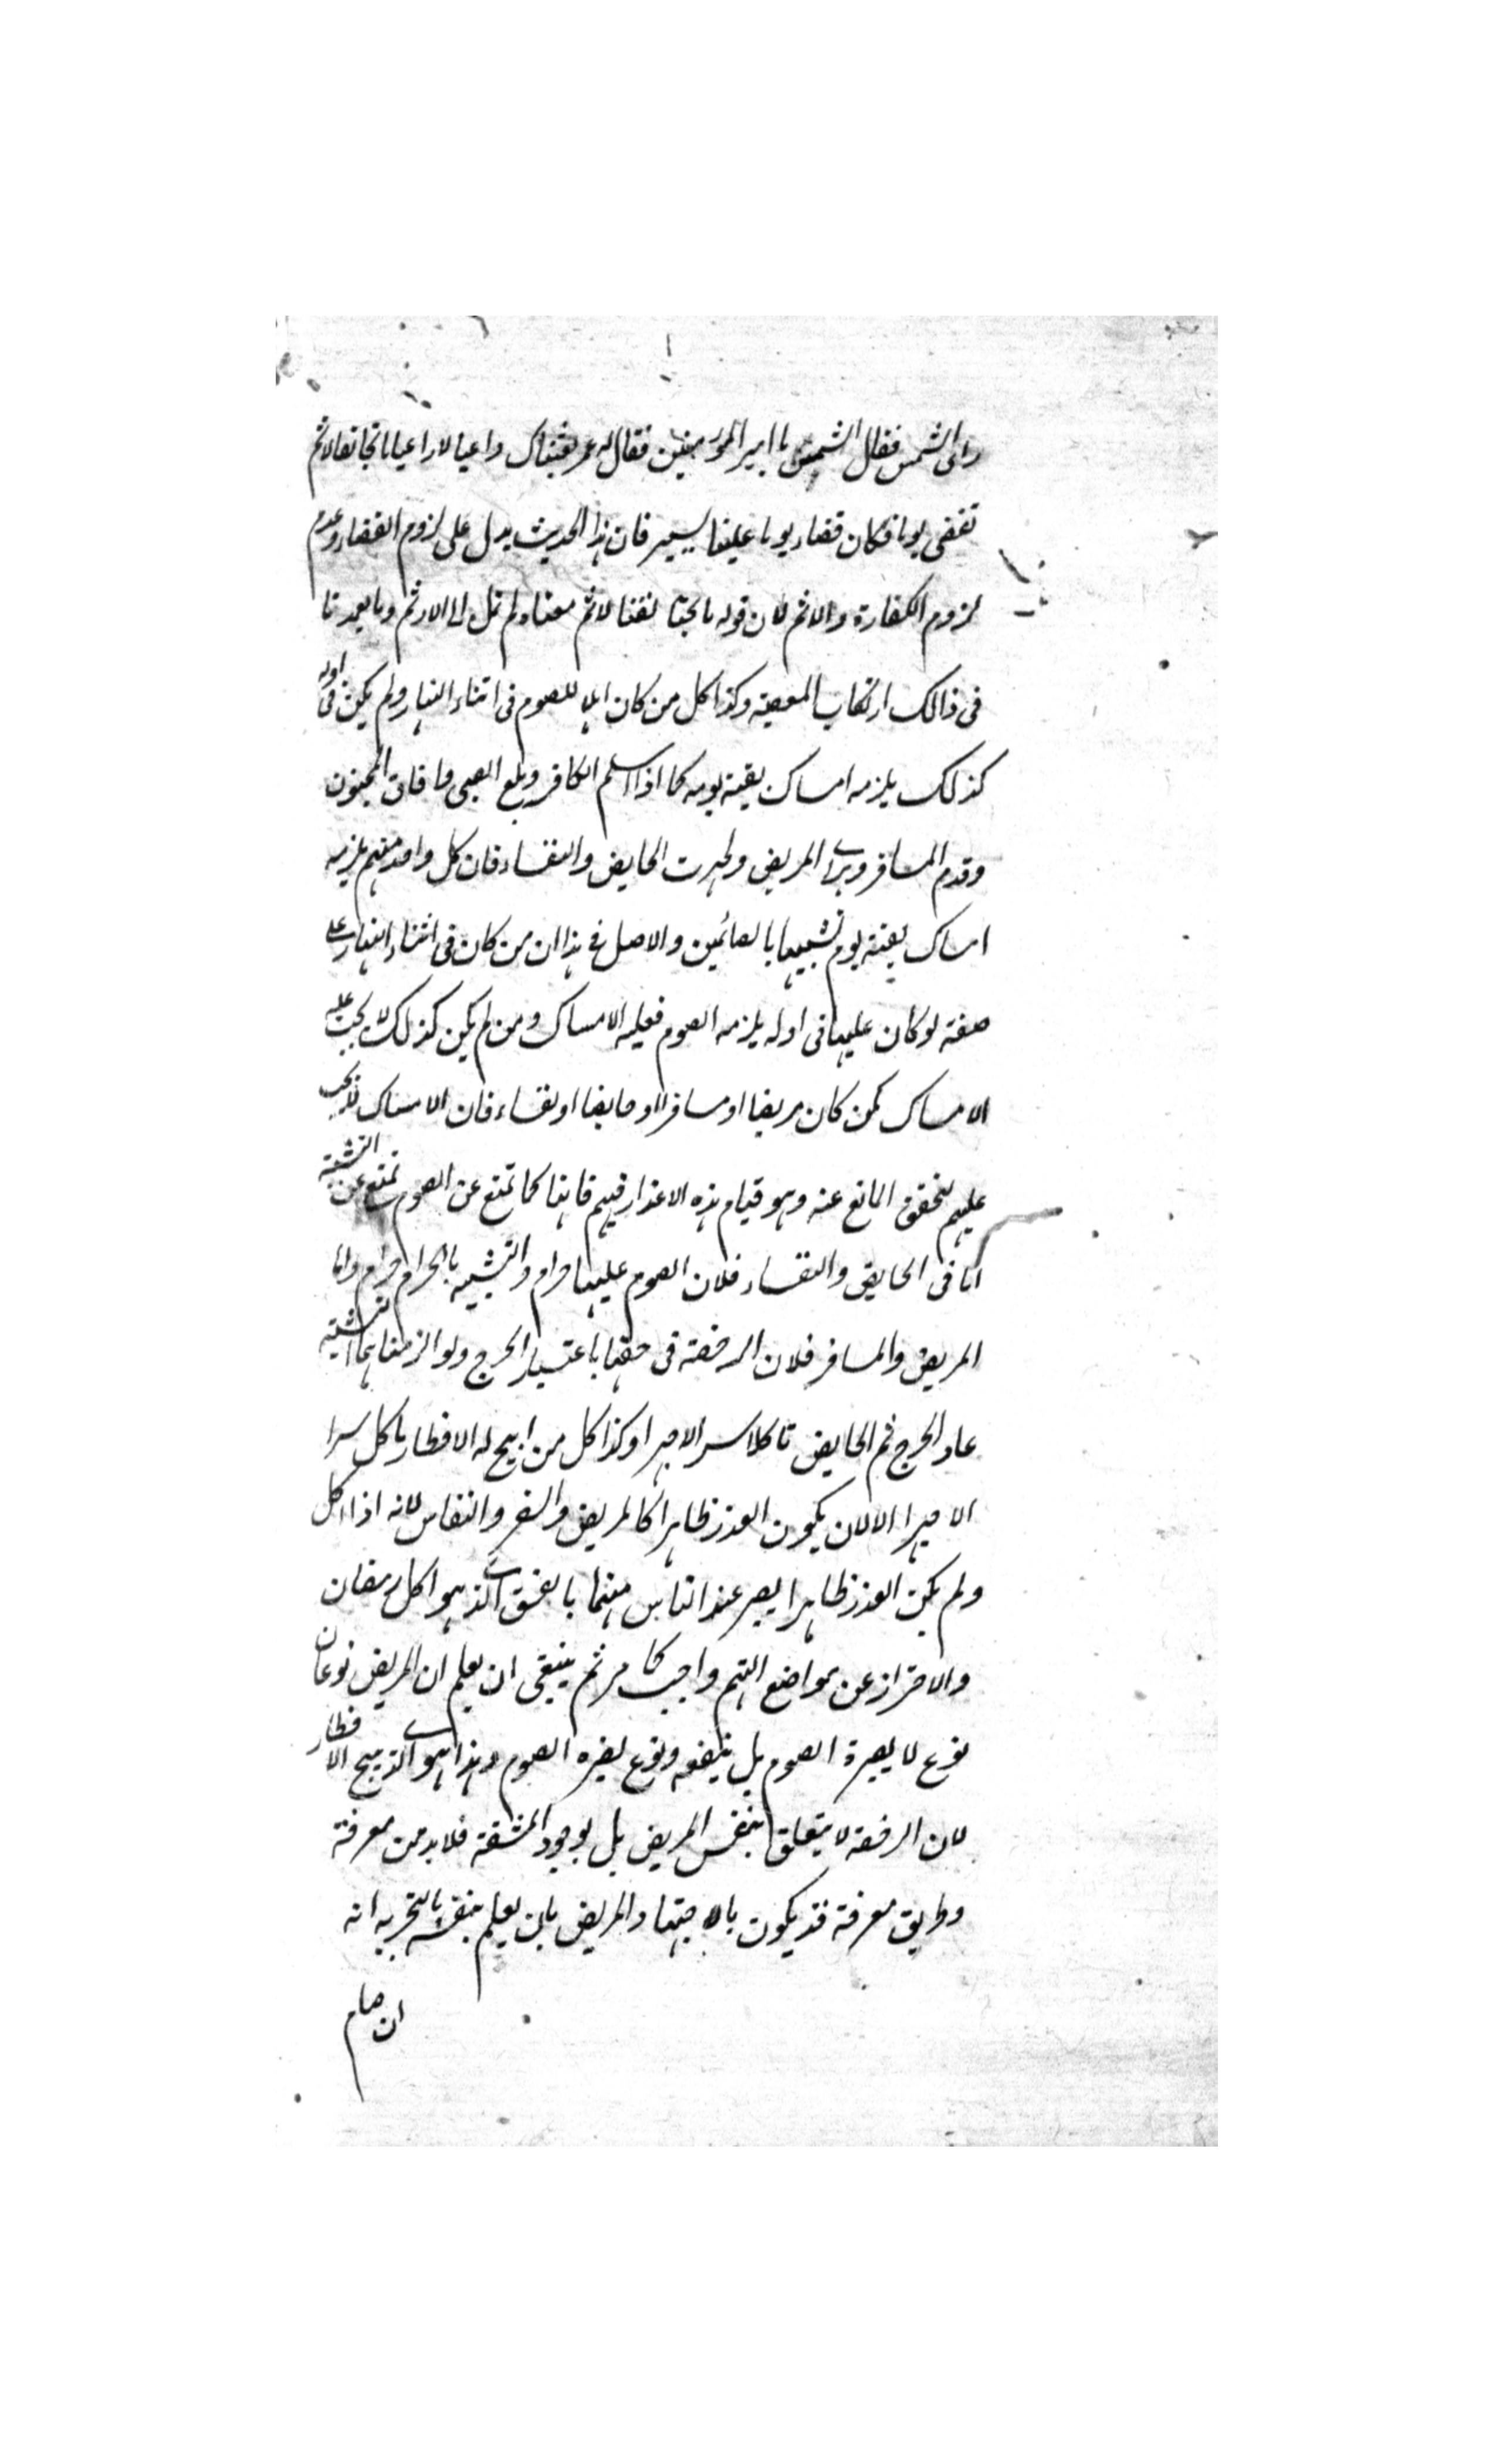 رای الشمس فقال الشمس یا امیر المؤمنین فقال له عمر بعثناک داعیا لا راعیا ما تجانفنا لاثم
نقضی یوما فکان قضاء یوما علینا یسیر فان هذا الحدیث یدل علی لزوم القضاء وعدم
لزوم الکفارة والاثم لان قوله ما تجانفنا لاثم معناه لم نمل الی الاثم وما تعمدنا
فی ذالک ارتکاب المعصیة وکذا کل من کان اهلا للصوم فی اثناء النهار ولم یکن فی اوله
کذلک یلزمه امساک بقیة یومه کما اذا اسلم الکافر وبلغ الصبی وافاق المجنون
وقدم المسافر وبرای المریض وطهرت الحایض والنفساء فان کل واحد منهم یلزمه
امساک بقیة یوم تشبیها بالصائمین والاصل فی هذا ان من کان فی اثناء النهار علی
صفة لو کان علیها فی اوله یلزمه الصوم فعلیه الامساک ومن لم یکن کذلک لا یجب علیه
الامساک کمن کان مریضا او مسافرا او حایضا او نفساء فان الامساک لا یجب
علیهم لتحقق المانع عنه وهو قیام هذه الاعذار فیهم فانها کما تمنع عن الصوم تمنع عن التشبیه
اما فی الحایض والنفساء فلان الصوم علیها حرام والتشبیه بالحرام حرام واما
المریض والمسافر فلان الرخصة فی حقها باعتبار الحرج ولو الزمناهما التشبیه
عاد الحرج ثم الحایض تاکل سرا لا جهرا وکذا کل من ابیح له الافطار یاکل سرا
لا جهرا الا ان یکون العذر ظاهرا کالمریض والسفر والنفاس لانه اذا اکل
ولم یکن العذر ظاهرا یصیر عند الناس متهما بالفسق الذی هو اکل رمضان
والاحتراز عن مواضع التهم واجب کما مر ثم ینبغی ان یعلم ان المریض نوعان
نوع لا یضره الصوم بل ینفعه ونوع یضره الصوم وهذا هو الذی یبیح الافطار
لان الرخصة لا یتعلق بنفس المریض بل بوجود المشقة فلا بد من معرفة
وطریق معرفة قد یکون بالاجتهاد المریض بان یعلم بنفسه بالتجربه انه
ان صام